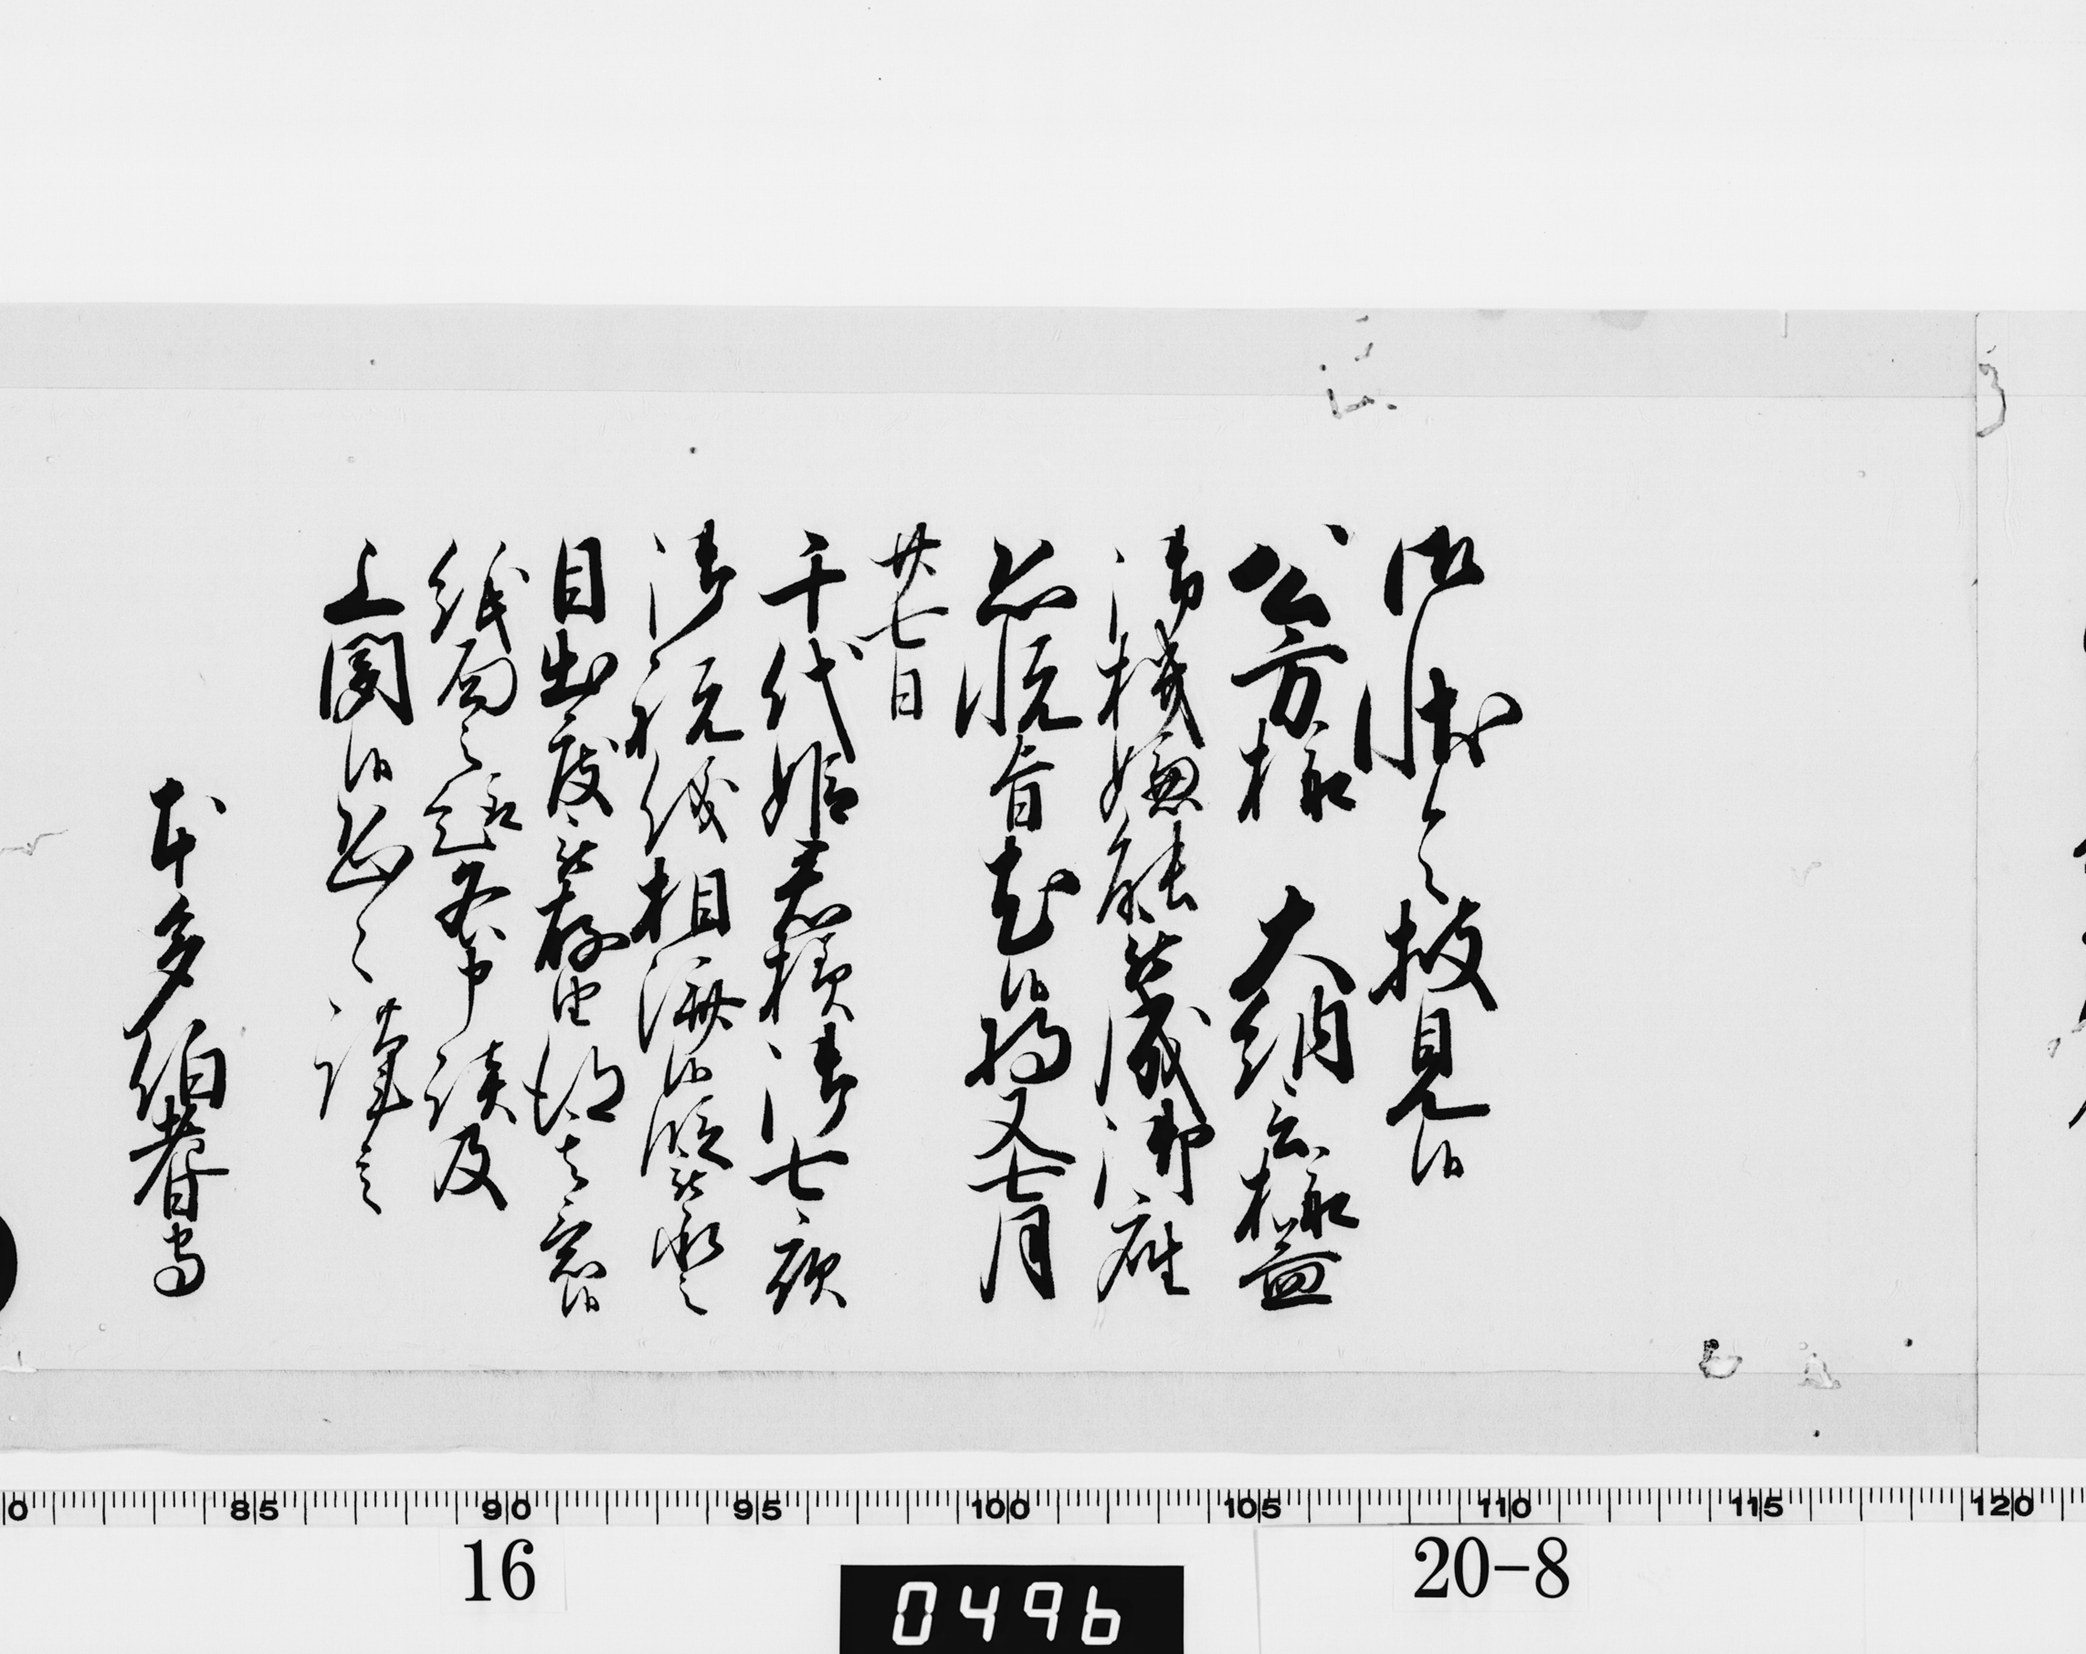 御状令披見候
公方様 大納言様益
御機嫌能被成御座
恐悦旨尤候将又七月
廿七日
千代姫君様御七夜
御祝儀相済候段被承之
目出度被存由得其意候
紙面之趣各申談及
上聞候恐々謹言
本多伯耆守
85
90
95
100
105
110
115
120
16
20-8
0496